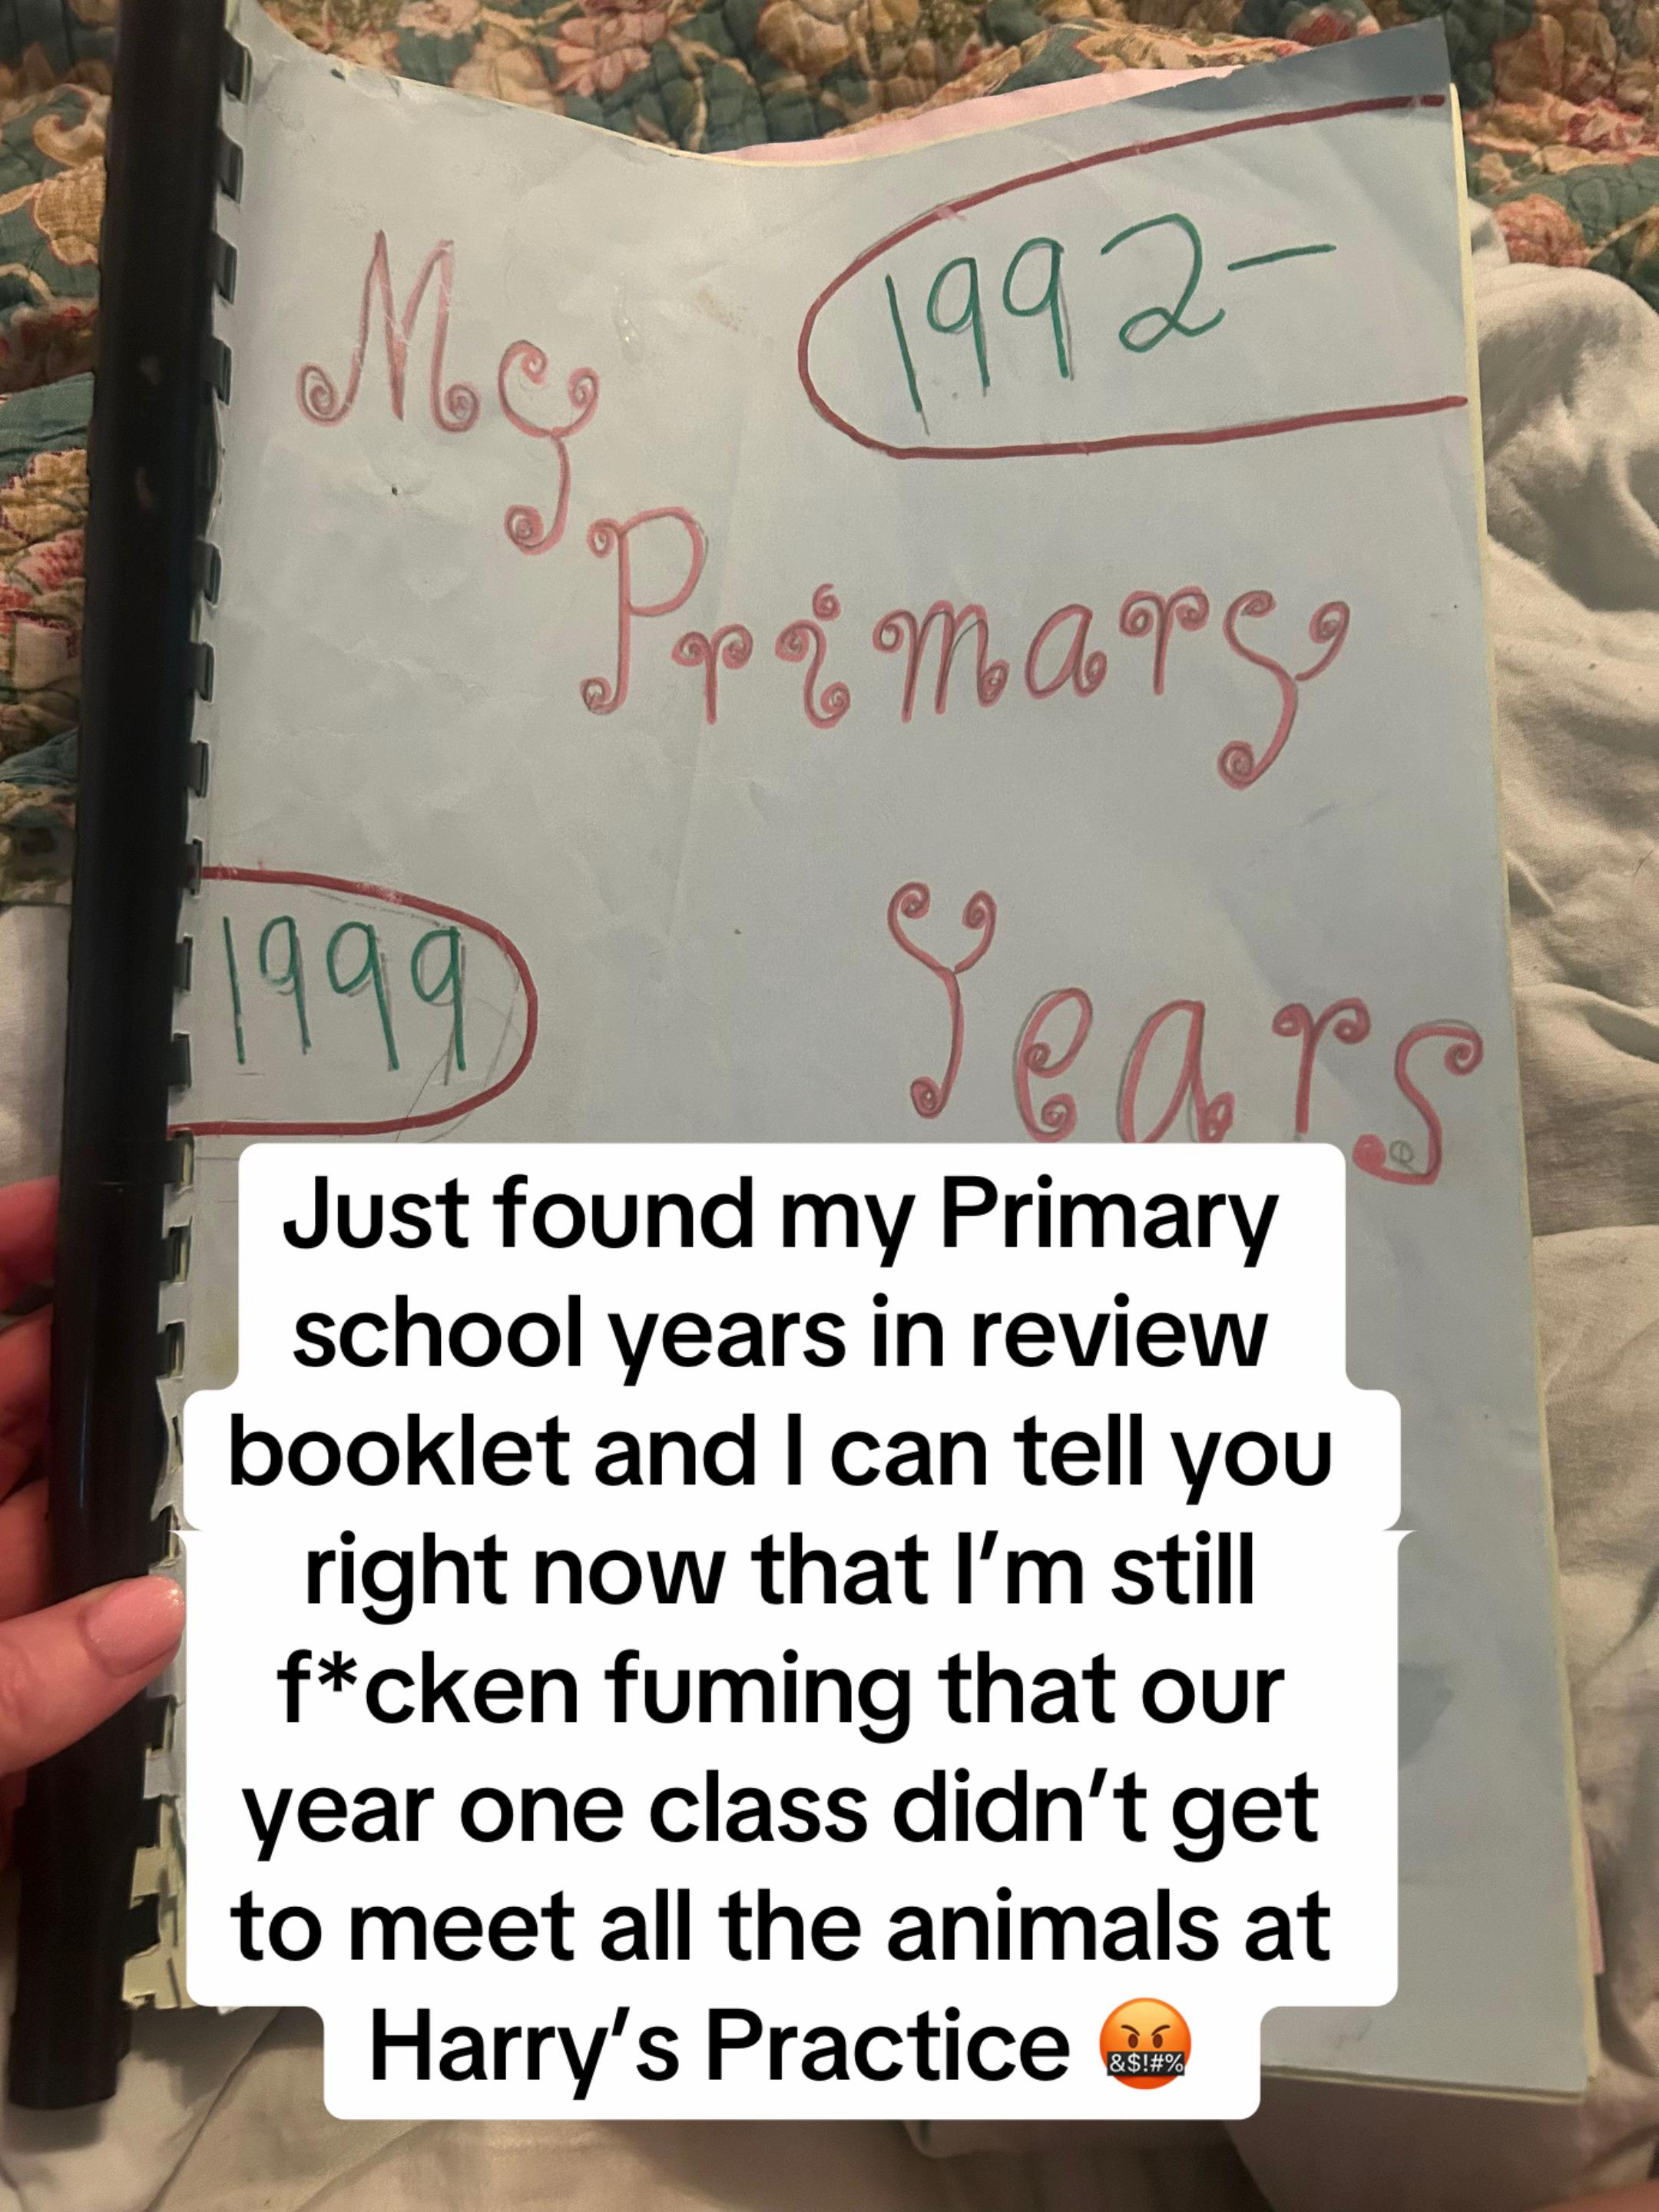 My
1992-
Primary
1999
Years
Just found my Primary
school years in review
booklet and I can tell you
right now that I’m still
f*cken fuming that our
year one class didn’t get
to meet all the animals at
Harry’s Practice 🤬
&$!#%